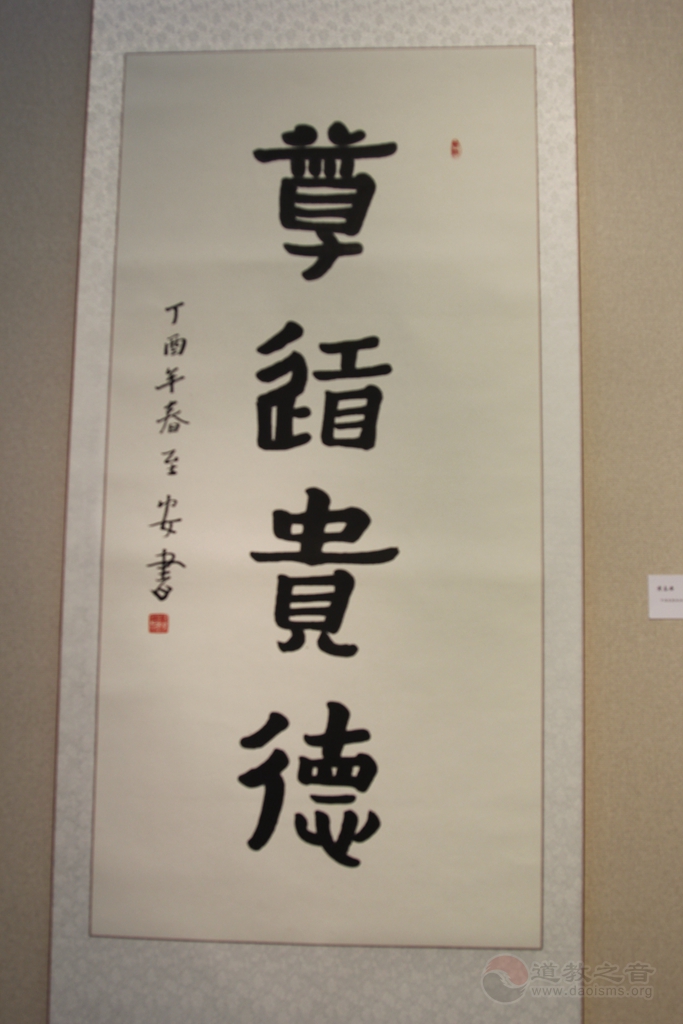 尊道貴德
丁酉年春至安書
道教之音
www.daoisms.org